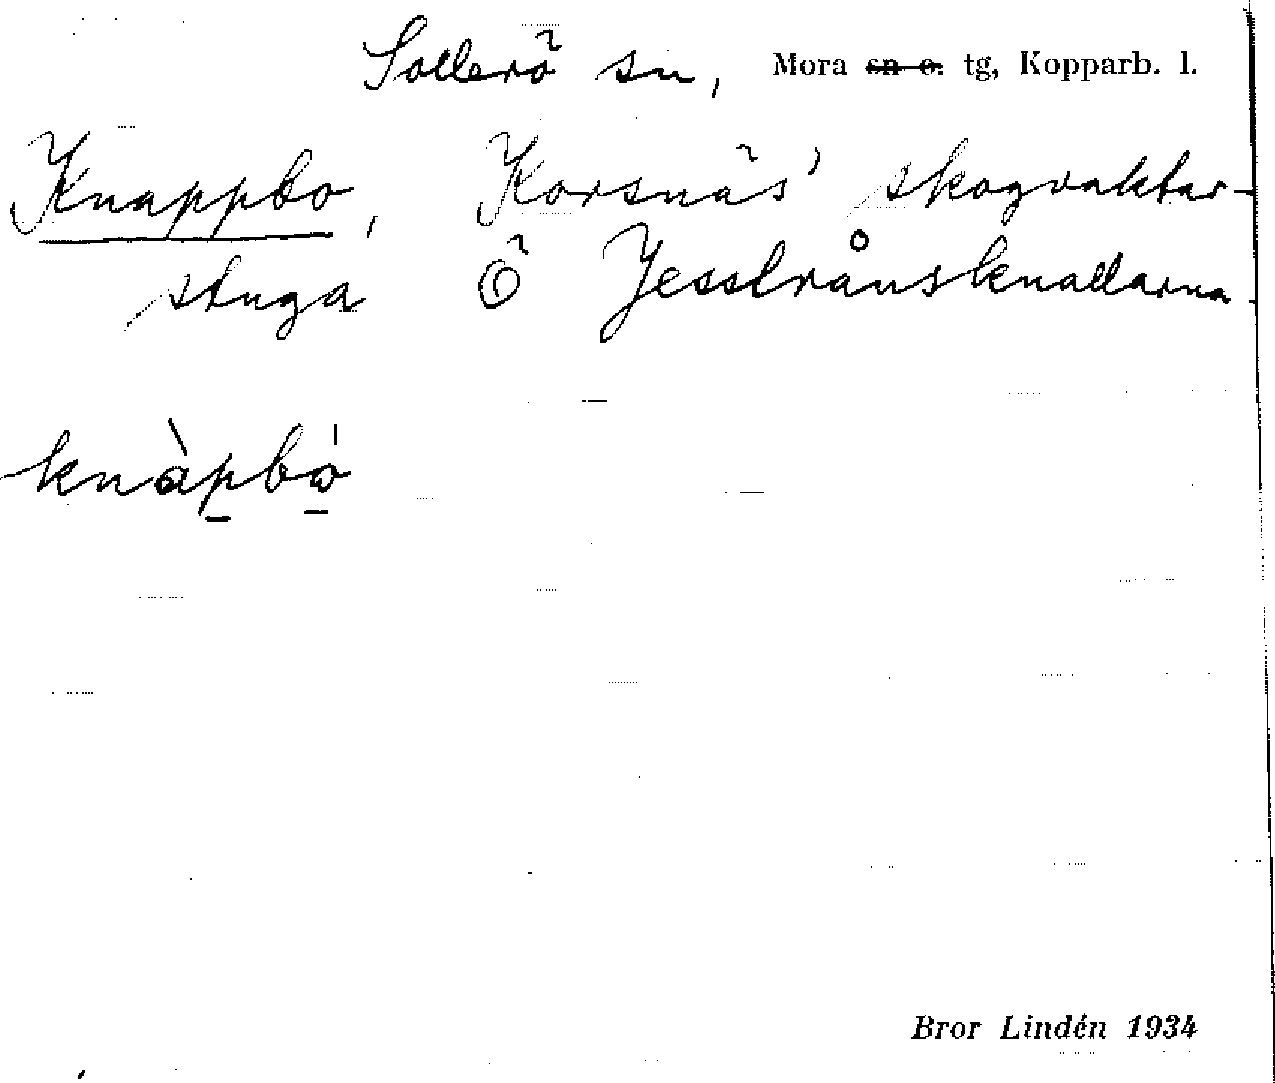 Sollerö sn, Mora sn o. tg, Kopparb. l.
Knappbo, Korsnäs' skogvaktar-
stuga Ö Jesslrånsknallarna.
knàpbo̲
Bror Lindén 1934